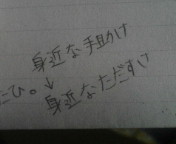 身近な手助け
たひ。↓
身近なただすけ